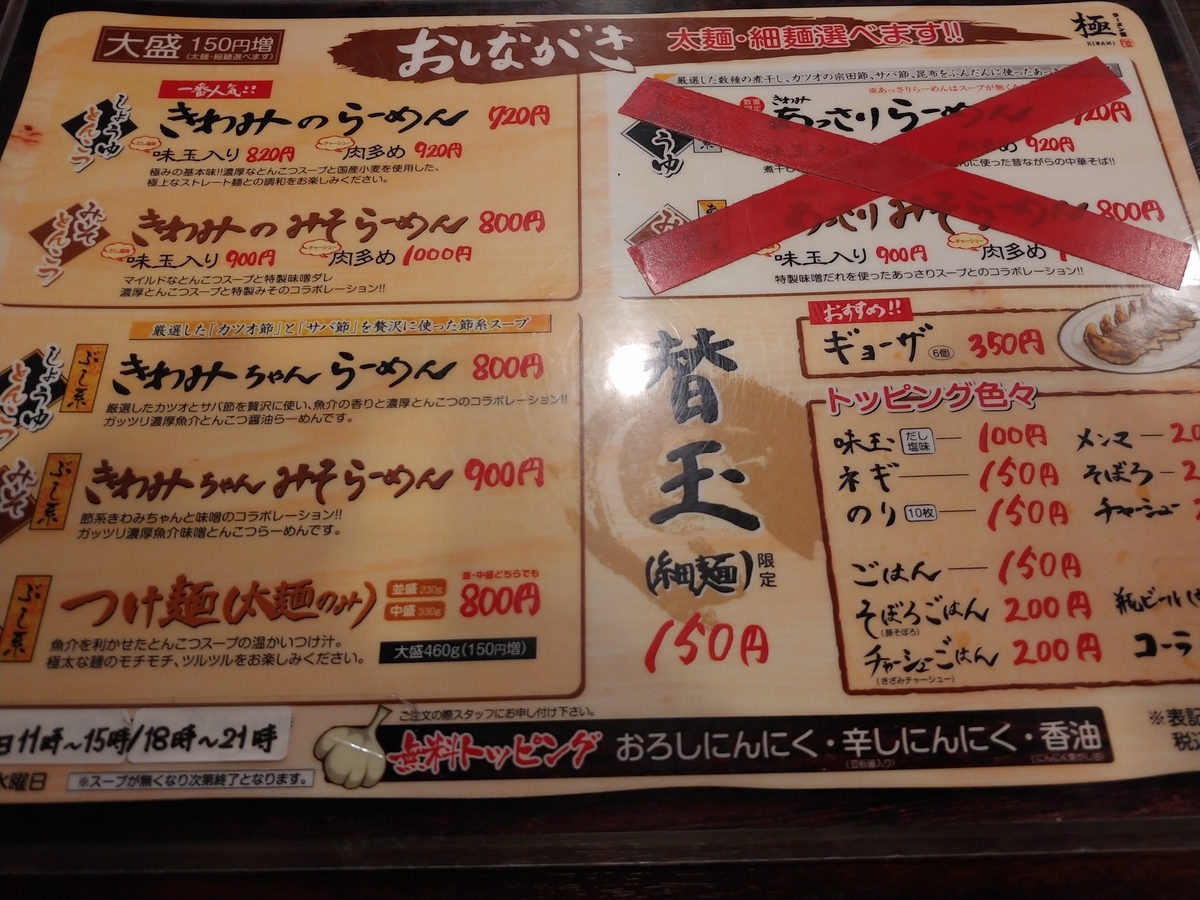 大盛 150円増
(太麺・細麺選べます)
おしながき
太麺・細麺選べます!!
極
KIWAMI
一番人気!!
しょうゆ
とんこつ
きわみのらーめん 720円
味玉入り 820円 肉多め 920円
極みの基本味!!濃厚なとんこつスープと国産小麦を使用した、
極上なストレート麺との調和をお楽しみください。
みそ
とんこつ
きわみのみそらーめん 800円
味玉入り 900円 肉多め 1000円
マイルドなとんこつスープと特製味噌ダレ
濃厚とんこつスープと特製みそのコラボレーション!!
厳選した「カツオ節」と「サバ節」を贅沢に使った節系スープ
しょうゆ
とんこつ
ぶし系
きわみちゃんらーめん 800円
厳選したカツオとサバ節を贅沢に使い、魚介の香りと濃厚とんこつのコラボレーション!!
ガッツリ濃厚魚介とんこつ醤油らーめんです。
みそ
ぶし系
きわみちゃんみそらーめん 900円
節系きわみちゃんと味噌のコラボレーション!!
ガッツリ濃厚魚介味噌とんこつらーめんです。
ぶし系
つけ麺(太麺のみ)
並盛 230g
中盛 330g
並・中盛どちらでも
800円
魚介を利かせたとんこつスープの温かいつけ汁。
極太な麺のモチモチ、ツルツルをお楽しみください。
大盛460g(150円増)
厳選した数種の煮干し、カツオの宗田節、サバ節、昆布をふんだんに使ったあっさ
※あっさりらーめんはスープが無くな
数量限定
きわみ
あっさりらーめん 720円
920円
煮干し
に使った昔ながらの中華そば!!
あっさりみそらーめん 800円
味玉入り 900円 肉多め
特製味噌だれを使ったあっさりスープとのコラボレーション!!
替玉
(細麺)限定
150円
おすすめ!!
ギョーザ 6個 350円
トッピング色々
味玉 だし塩味 100円 メンマ
ネギ 150円 そぼろ
のり 10枚 150円 チャーシュー
ごはん 150円
そぼろごはん 200円 瓶ビール
(豚そぼろ)
チャーシューごはん 200円 コーラ
(きざみチャーシュー)
11時〜15時/18時〜21時
水曜日 ※スープが無くなり次第終了となります。
ご注文の際スタッフにお申し付け下さい。
無料トッピング おろしにんにく・辛しにんにく・香油
(豆板醤入り) (にんにく焦がし油)
※表記
税込